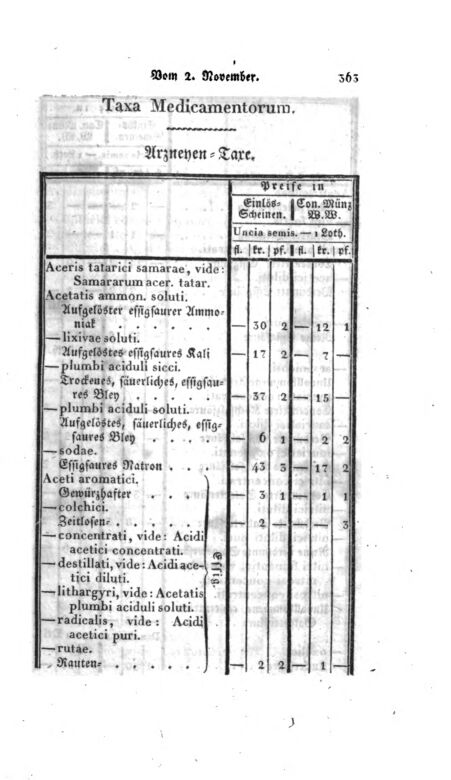 Vom 2. November. 363
Taxa Medicamentorum.
Arzneyen-Taxe.
Preise in
Einlös- Con. Münz
Scheinen. W. W.
Uncia semis. — 1 Loth.
fl. kr. pf. fl. kr. pf.
Aceris tatarici samarae, vide:
Samararum acer. tatar.
Acetatis ammon. soluti.
Aufgelöster essigsaurer Ammo-
niak . . . . . . — 30 2 — 12 1
— lixivae soluti.
Aufgelöstes essigsaures Kali — 17 2 — 7 —
— plumbi aciduli sicci.
Trockenes, säuerliches, essigsau-
res Bley . . . . . — 37 2 — 15 —
— plumbi aciduli soluti.
Aufgelöstes, säuerliches, essig-
saures Bley . . . . — 6 1 — 2 2
— sodae.
Essigsaures Natron . . . — 43 3 — 17 2
Aceti aromatici.
Gewürzhafter . . . . — 3 1 — 1 1
— colchici.
Zeitlosen- . . . . . — 2 — — — 3
— concentrati, vide: Acidi
acetici concentrati.
— destillati, vide: Acidi ace-
tici diluti.
Essig.
— lithargyri, vide: Acetatis
plumbi aciduli soluti.
— radicalis, vide: Acidi
acetici puri.
— rutae.
Rauten- . . . . . — 2 2 — 1 —